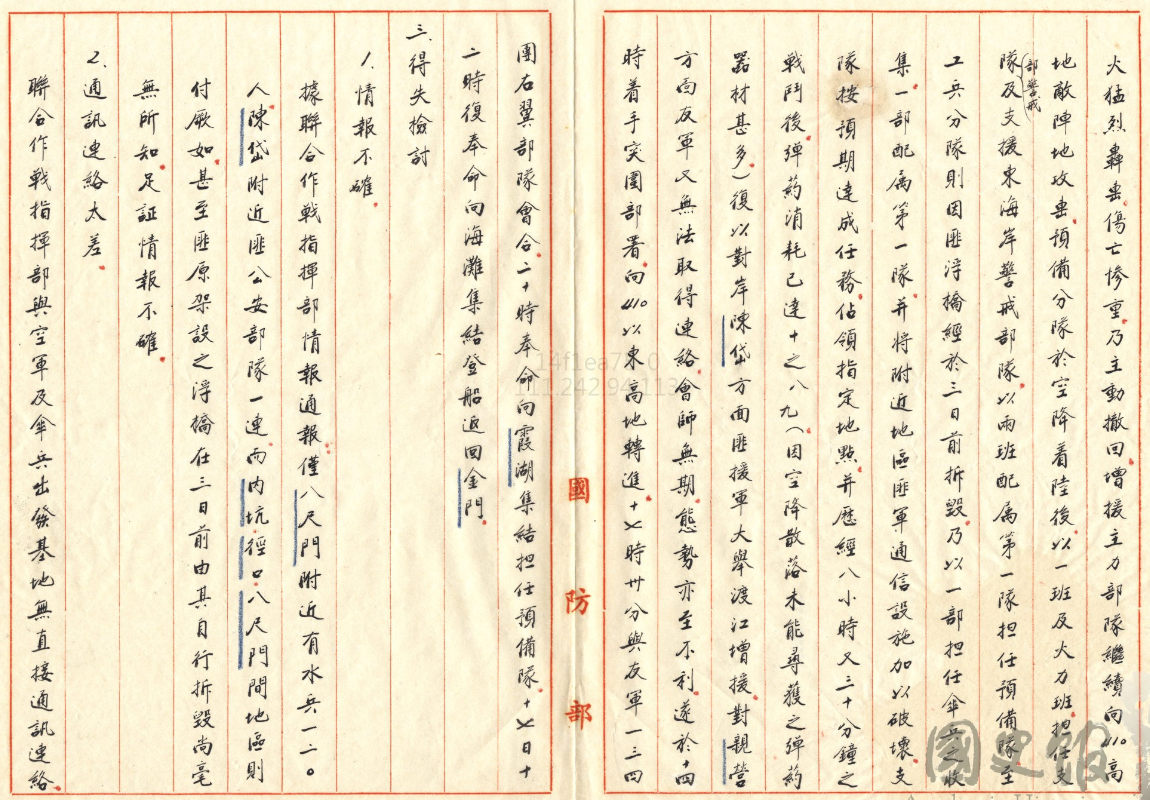 火猛烈轟击傷亡慘重乃主動撤回增援主力部隊繼續向410高
地敵陣地攻击預備分隊於空降着陸後以一班及火力班担任支
隊(部警戒)及支援東海岸警戒部隊以兩班配属第一隊担任預備隊至
工兵分隊則因匪浮橋經於三日前拆毀乃以一部担任傘兵之收
集一部配属第一隊并將附近地區匪軍通信設施加以破壞支
隊按預期達成任務佔領指定地點并歷經八小時又三十分鐘之
戰鬥後弹药消耗已達十之八九(因空降散落未能尋獲之弹药
器材甚多)復以對岸陳岱方面匪援軍大舉渡江增援對親營
方面友軍又無法取得連絡會師無期態勢亦至不利遂於十四
時着手突圍部署向410以東高地轉進十七時卅分與友軍一三四
國防部
團右翼部隊會合二十時奉命向霞湖集結担任預備隊十七日十
二時復奉命向海灘集結登船返回金門
三.得失檢討
1.情報不確
據聯合作戰指揮部情報通報僅八尺門附近有水兵一二〇
人陳岱附近匪公安部隊一連而内坑徑口八尺門間地區則
付厥如甚至匪原架設之浮橋在三日前由其自行拆毀尚毫
無所知足証情報不確
2.通訊連絡太差
聯合作戰指揮部與空軍及傘兵出發基地無直接通訊連絡
14f1ea7
111.242.94.113
國史館